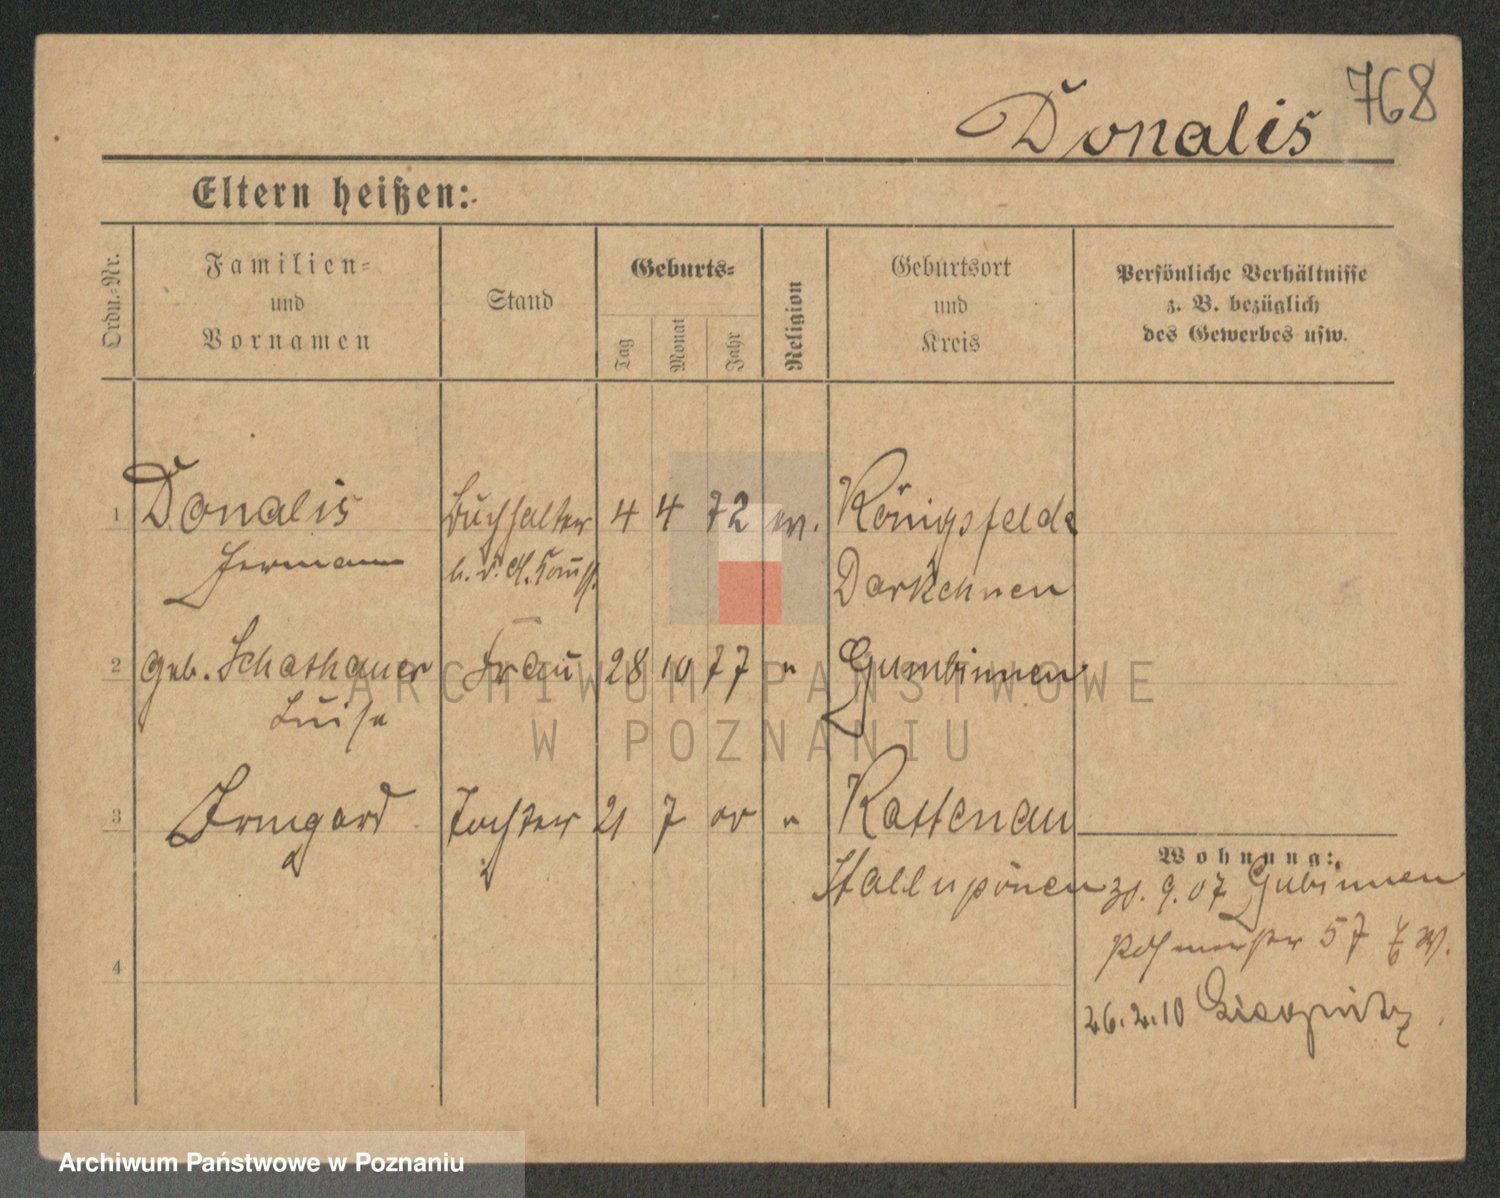 768
Donalis
Eltern heißen:
Ordn.-Nr.
Familien-
und
Vornamen
Stand
Geburts-
Tag
Monat
Jahr
Religion
Geburtsort
und
Kreis
Persönliche Verhältnisse
z. B. bezüglich
des Gewerbes usw.
1 Donalis Buchhalter 4 4 72 ev. Königsfelde
Hermann Darkehmen
2 geb. Schathauer Frau 28 10 77 " Gumbinnen
Luise
3 Irmgard Tochter 21 7 00 " Kattenau
Stallupönen
Wohnung:
30. 9. 07 Gubinnen
57
4
26.2.10
ARCHIWUM PAŃSTWOWE
W POZNANIU
Archiwum Państwowe w Poznaniu